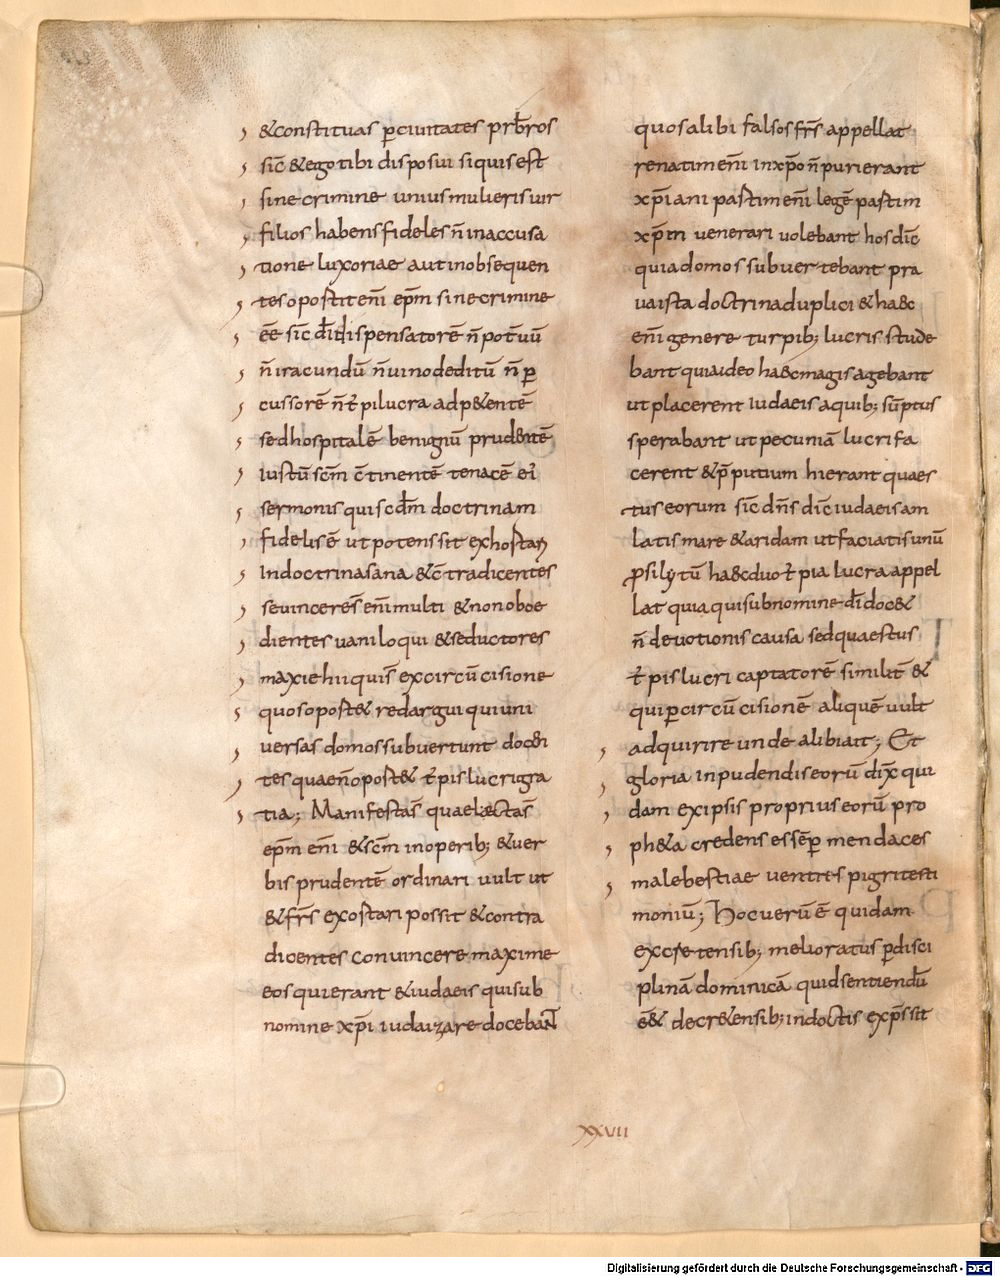 &constituas p̄ciuitates prb̄ros
sic̄ &egotibi disposui siquisest
sinecrimine unius mulieris uir
filios habensfideles n̄ inaccusa
tione luxoriae autinobsequen
tesoportet enī ep̄m sinecrimine
ēē sic̄ dī dispensatorē n̄ potuū
n̄ iracundū n̄ uinodeditū n̄ p̄
cussorē n̄ t̄pilucra adp&entē
sedhospitalē benigiū prudentē
iustū sc̄m c̄tinentē tenacē ei
sermonis qui scdm̄ doctrinam
fidelisē ut potens sit exhortari
Indoctrinasana &c̄tradicentes
seuinceres enī multi &nonoboe
dientes uaniloqui &seductores
maxie hii quis̄ excircūcisione
quosoport& redargui quiuni
uersas domossubuertunt docen
tes quaen̄oport& t̄pislucrigra
tia; Manifestas̄ quaelectas̄
ep̄m enī &sc̄m inoperib; &uer
bis prudentē ordinari uult ut
&frs̄ exostari possit &contra
dicentes conuincere maxime
eos quierant &iudaeis quisub
nomine xp̄i iudaizare doceban̄t
quosalibi falsosfrs̄ appellat
renatimenī inxp̄o n̄ purierant
xp̄iani pastimenī legē pastim
xp̄m uenerari uolebant hosdic̄
quiadomos subuertebant pra
uaista doctrinaduplici &ha&c
enī genere turpib; lucris stude
bant quiaideo ha&cmagisagebant
ut placerent iudaeis aquib; sūptus
sperabant ut pecuniā lucrifa
cerent &p̄putium hierant quaes
tus eorum sic̄ dn̄s dic̄ iudaeis am
latis mare &aridam ut faciatis unū
prosilytū ha&cduo t̄pia lucra appel
lat quia quisubnomine dī doc&
n̄ deuotionis causa sed quaestus
t̄pis lucri captatorē similit̄ &
qui p̄circūcisionē aliquē uult
adquirire unde alibiait; Et
gloria inpudendis eorū dix̄ qui
dam exipsis proprius eorū pro
ph&a credens essemp̄ mendaces
malebestiae uentres pigritesti
moniū; Hocuerū ē quidam
excretensib; melioratus p̄disci
plinā dominicā quidsentiendū
ē& decr&ensib; indoctis exp̄ssit
XXVII
Digitalisierung gefördert durch die Deutsche Forschungsgemeinschaft - DFG